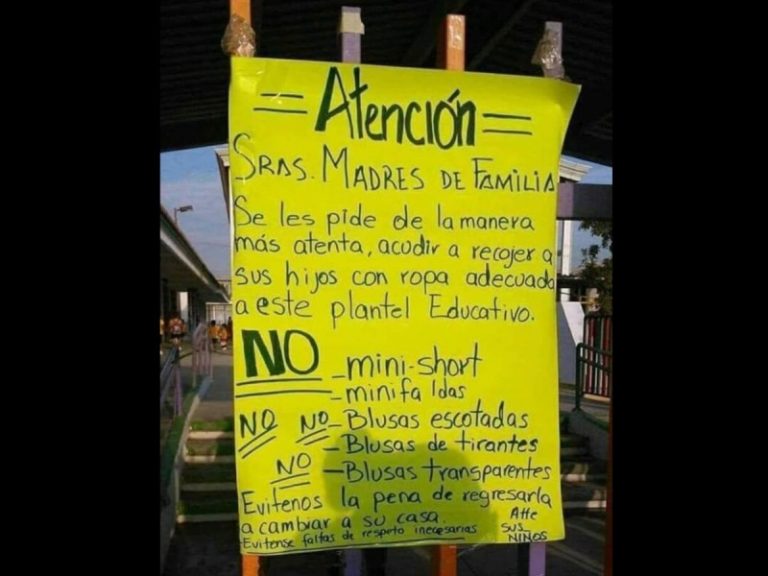 = Atención =
SRAS. MADRES DE FAMILIA
Se les pide de la manera
más atenta, acudir a recojer a
sus hijos con ropa adecuada
a este plantel Educativo.
NO - mini-short
- minifaldas
NO NO - Blusas escotadas
- Blusas de tirantes
NO - Blusas transparentes
Evitenos la pena de regresarla
a cambiar a su casa. Atte
Evitense faltas de respeto inecesarias SUS
NIÑOS